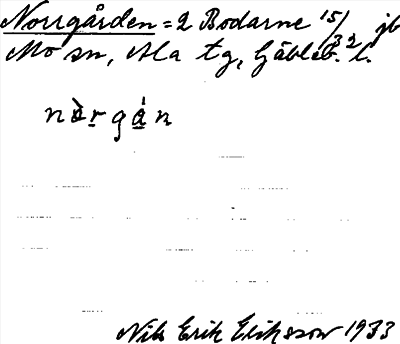 Norrgården = 2 Bodarne 15/32 jb
Mo sn, Ala tg, Gävleb. l.
nàrgán
Nils Erik Eriksson 1933